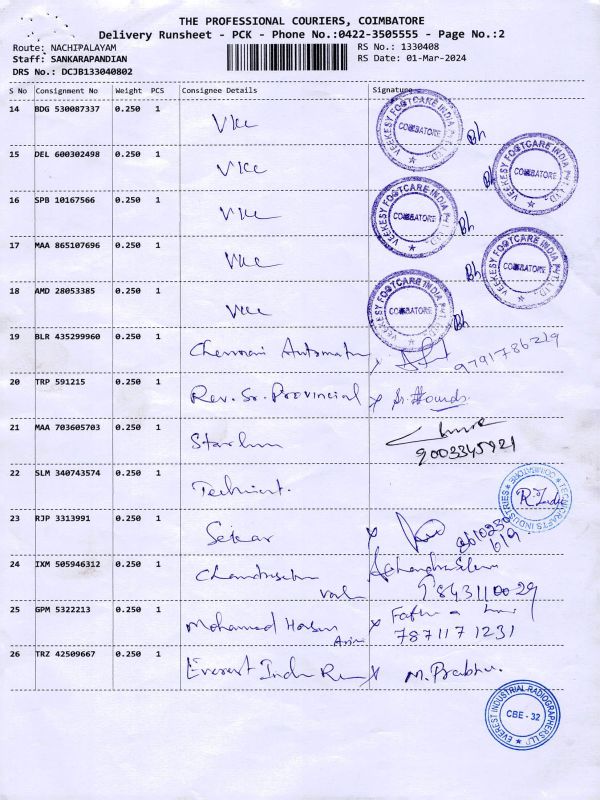 THE PROFESSIONAL COURIERS, COIMBATORE
Delivery Runsheet - PCK - Phone No.:0422-3505555 - Page No.:2
Route: NACHIPALAYAM
RS No.: 1330408
Staff: SANKARAPANDIAN
RS Date: 01-Mar-2024
DRS No.: DCJB133040802
S No Consignment No Weight PCS Consignee Details Signature
14 BDG 530087337 0.250 1 VKC
VEEKESY FOOTCARE INDIA PVT.LTD. COIMBATORE
15 DEL 600302498 0.250 1 VKC
VEEKESY FOOTCARE INDIA PVT.LTD. COIMBATORE
16 SPB 10167566 0.250 1 VKC
VEEKESY FOOTCARE INDIA PVT.LTD. COIMBATORE
17 MAA 865107696 0.250 1 VKC
VEEKESY FOOTCARE INDIA PVT.LTD. COIMBATORE
18 AMD 28053385 0.250 1 VKC
VEEKESY FOOTCARE INDIA PVT.LTD. COIMBATORE
19 BLR 435299960 0.250 1 Chennai
20 TRP 591215 0.250 1 Rev. Sr. Provincial
21 MAA 703605703 0.250 1
9003345921
22 SLM 340743574 0.250 1
23 RJP 3313991 0.250 1 Sekar
24 IXM 505946312 0.250 1
9843110029
25 GPM 5322213 0.250 1 Mohamed
7871171231
26 TRZ 42509667 0.250 1 Everest M. Prabhu.
EVEREST INDUSTRIAL RADIOGRAPHERS LLP
CBE - 32